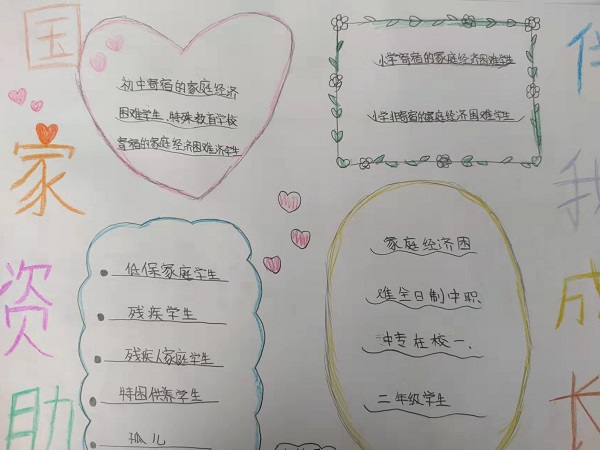 国家资助
伴我成长
初中寄宿的家庭经济
困难学生、特殊教育学校
寄宿的家庭经济困难济学生
小学寄宿的家庭经济困难学生
小学非寄宿的家庭经济困难学生
低保家庭学生
残疾学生
残疾人家庭学生
特困供养学生
孤儿
家庭经济困
难全日制中职
中专在校一、
二年级学生